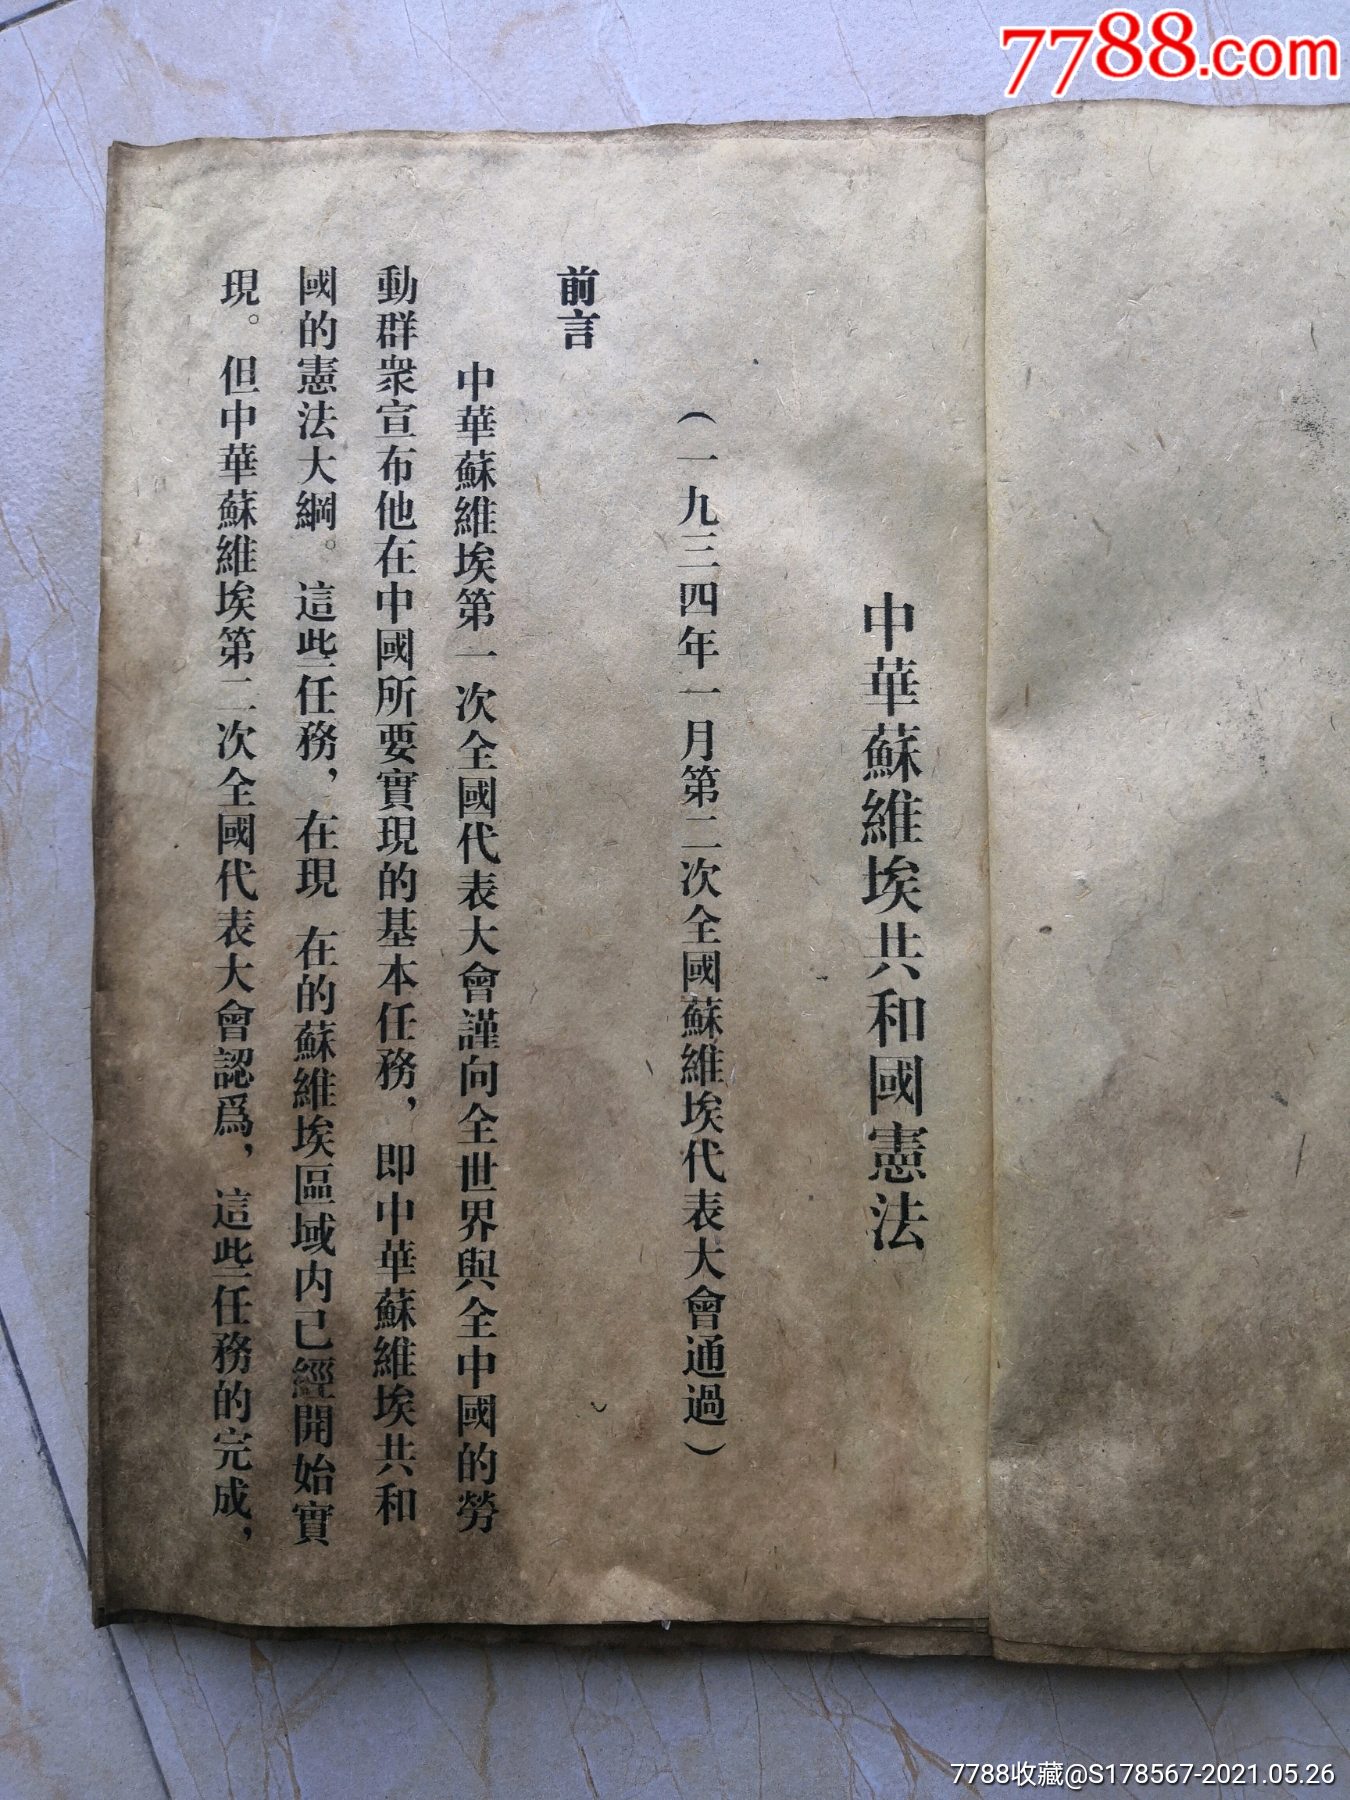 7788.com
中華蘇維埃共和國憲法
（一九三四年一月第二次全國蘇維埃代表大會通過）
前言
中華蘇維埃第一次全國代表大會謹向全世界與全中國的勞
動群衆宣布他在中國所要實現的基本任務，即中華蘇維埃共和
國的憲法大綱。這些任務，在現 在的蘇維埃區域内已經開始實
現。但中華蘇維埃第二次全國代表大會認爲，這些任務的完成，
7788收藏@S178567-2021.05.26